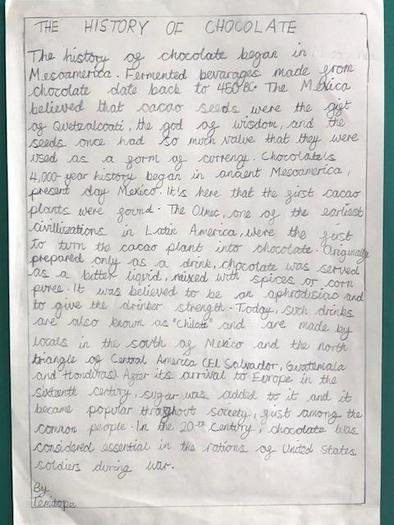 THE HISTORY OF CHOCOLATE
The history of chocolate began in
Mesoamerica. Fermented bevarages made from
chocolate date back to 450 BC. The Mexica
believed that cacao seeds were the gift
of Quetzalcoatl, the god of wisdom, and the
seeds once had so much value that they were
used as a form of currency. Chocolate's
4,000-year history began in ancient Mesoamerica,
present day Mexico. It's here that the first cacao
plants were found. The Olmec, one of the earliest
civilizations in Latin America, were the first
to turn the cacao plant into chocolate. Originally
prepared only as a drink, chocolate was served
as a bitter liquid, mixed with spices or corn
puree. It was believed to be an aphrodisiac and
to give the drinker strength. Today, such drinks
are also known as "Chilate" and are made by
locals in the south of Mexico and the north
triangle of Central America (El Salvador, Guatemala
and Honduras). After its arrival to Europe in the
sixteenth century, sugar was added to it and it
became popular throughout society, first among the
common people. In the 20th Century, chocolate was
considered essential in the rations of United States
soldiers during war.
By
Temitope